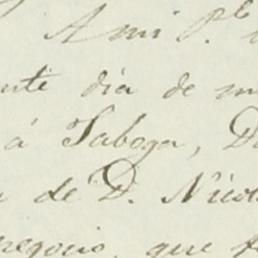 A mi P.
dia de
á Taboga, D
de D. Nicol
negocio, que